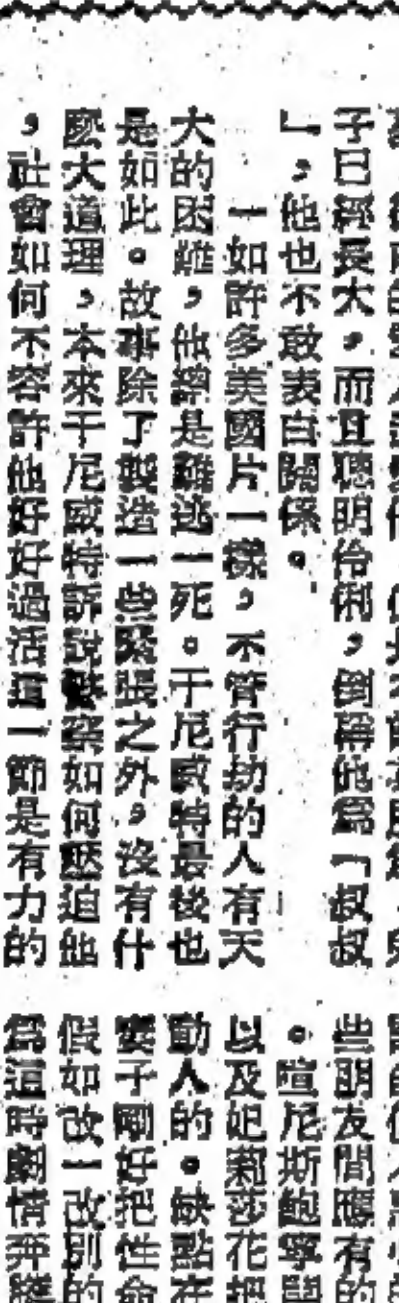 子已經長大，而且聰明伶俐，倒稱他爲「叔叔
」，他也不敢表白關係。
一如許多美國片一樣，不管行劫的人有天
大的困難，他總是難逃一死。于尼威特最後也
是如此。故事除了製造一些緊張之外，沒有什
麽大道理，本來于尼威特訴說警察如何壓迫他
，社會如何不容許他好好過活這一節是有力的
些朋友間應有的
。喧尼斯鮑寧
以及妃莉莎花把
動人的。缺點在
妻子剛好把性命
假如改一改別的
爲這時劇情奔騰